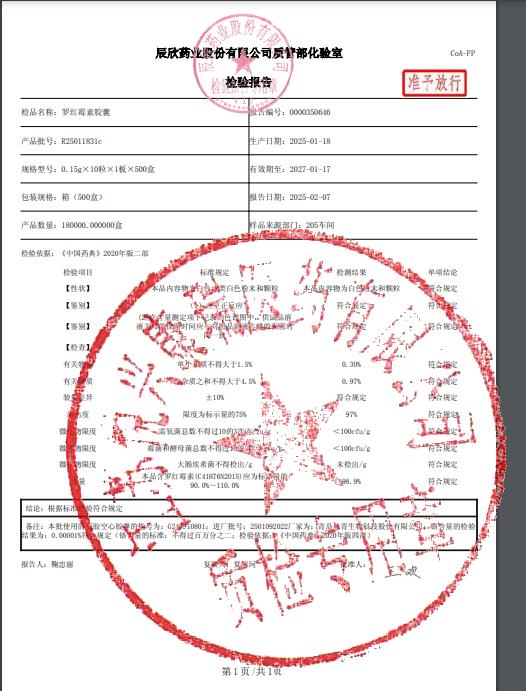 辰欣药业股份有限公司质管部化验室
CoA-FP
检验报告
准予放行
检品名称: 罗红霉素胶囊 报告编号: 0000350646
产品批号: R25011831c 生产日期: 2025-01-18
规格型号: 0.15g×10粒×1板×500盒 有效期至: 2027-01-17
包装规格: 箱（500盒） 报告日期: 2025-02-07
产品数量: 180000.000000盒 样品来源部门: 205车间
检验依据: 《中国药典》2020年版二部
检验项目 标准规定 检测结果 单项结论
【性状】 本品内容物为白色 类白色粉末和颗粒 本品内容物为白色 末和颗粒 符合规定
【鉴别】 正反应 符合规定 符合规定
【鉴别】 含量测定项下记 色谱图中，供试品溶 符合规定 符合规定
【检查】
有关物 单个 质不得大于1.5% 0.30% 符合规定
有关 质 杂质之和不得大于4.5% 0.97% 符合规定
装 差异 ±10% 符合规定 符合规定
出度 限度为标示量的75% 97% 符合规定
微 物限度 需氧菌总数不得过10的3次 cfu/g <100cfu/g 符合规定
微 物限度 霉菌和酵母菌总数不得过10 <100cfu/g 符合规定
微 物限度 大肠埃希菌不得检出/g 未检出/g 符合规定
量 本品含罗红霉素(C41H76N2O15)应为标示量的 98.9% 符合规定
90.0%~110.0%
结论: 根据标准 验符合规定
备注: 本批使用的 胶空心胶囊的批号为: 进厂批号: 2501092022 厂家为: 青岛 青生物科技股份有限公司，铬含量的检验
结果为: 0.00001% 规定（铬 量的标准: 不得过百万分之二; 检验依据: 《中国药典》2020年版四部）
报告人: 鞠忠丽 复 批准人:
第 1 页 /共 1页